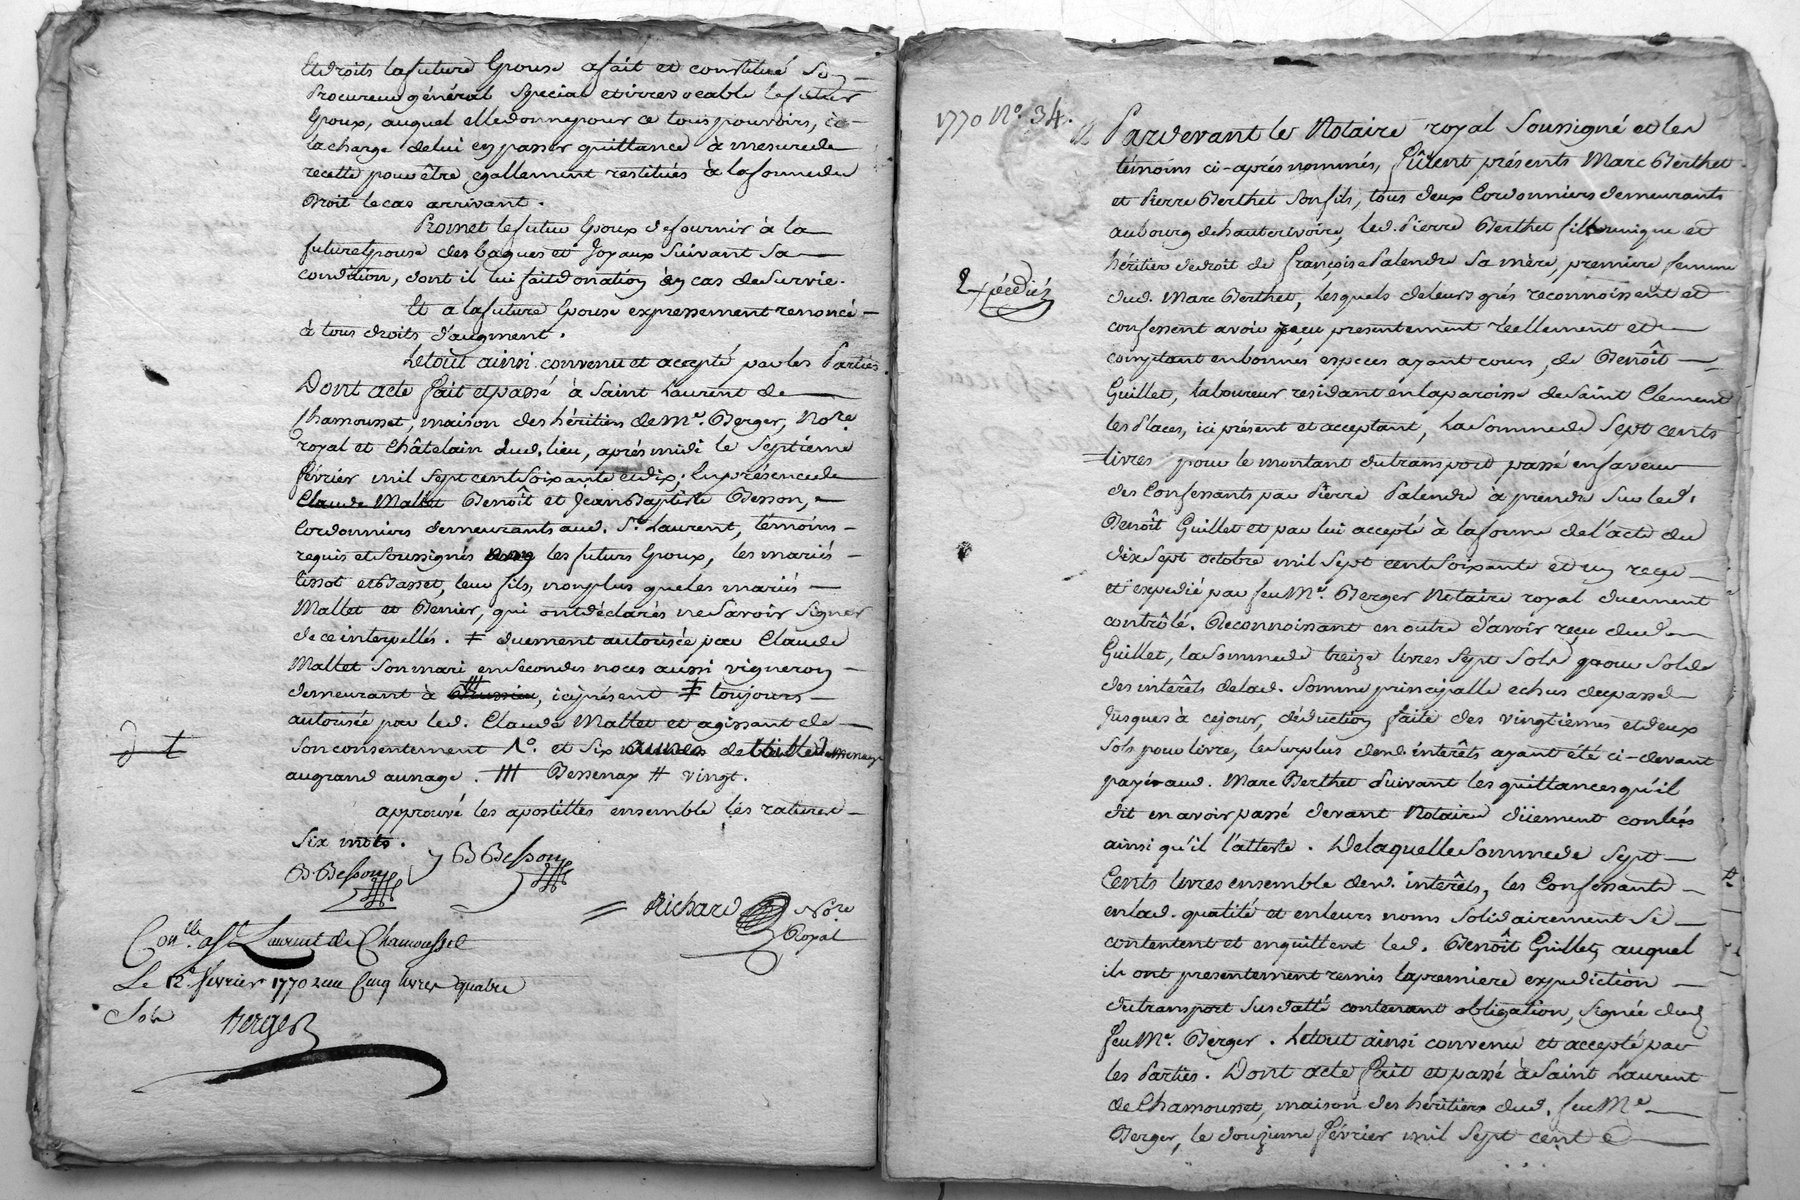 Et droits la future Epouse a fait et constitué so
Procureur général special et irrevocable le futur
Epoux, auquel elle donne pour ce tous pouvoirs, à
la charge de lui en passer quittance à mesure de
recette pour être egallement restitués à la forme du
Droit le cas arrivant.
Promet le futur Epoux de fournir à la
future Epouse des bagues et Joyaux suivant sa
condition, dont il lui fait donation en cas de survie.
Et a la future Epouse expressement renoncé
à tous droits d'augment.
Le tout ainsi convenu et accepté par les Parties
Dont acte fait et passé à Saint Laurent de
Chamousset, maison des héritiers de Me. Berger, Nore.
royal et Châtelain dud. lieu, après midi le septieme
février mil sept cent soixante et dix; En présence de
Claude Mallet Benoît et Jean Baptiste Besson,
Cordonniers demeurants aud. St. Laurent, témoins
requis et soussignés les futurs Epoux, les mariés
Tissot et Basset, leur fils, non plus que les mariés
Mallet et Benier, qui ont déclarés ne savoir signer
de ce interpellés. ≠ duement autorisée par Claude
Mallet son mari en secondes noces aussi vigneron
demeurant à Brussieu, ici présent ‡ toujours
autorisée par led. Claude Mallet et agissant de
son consentement 1o. et six aunes de
au grand aunage. ||| Bessenay # vingt.
approuvé les apostilles ensemble les ratures
six mots.
B Besson B Besson
Richard Nore
Royal
Conlle. a St Laurent de Chamousset
Le 12e. fevrier 1770 recu Cinq livres quatre
Sols Berger
1770 No. 34.
Expédiéz
Pardevant le Notaire royal soussigné et les
témoins ci-après nommés, fûrent présents Marc Berthet
et Pierre Berthet son fils, tous deux Cordonniers demeurants
au bourg de hauterivoire, led. Pierre Berthet fils unique et
héritier de droit de françoise Palendre sa mère, premiere femme
dud. Marc Berthet, Lesquels de leurs grés reconnoissent et
confessent avoir reçu presentement réellement et
comptant en bonnes especes ayant cours, de Benoît
Guillet, laboureur residant en la paroisse de Saint Clement
les Places, ici présent et acceptant, La Somme de sept cents
livres pour le montant du transport passé en faveur
des Confessants par Pierre Palendre à prendre sur led.
Benoît Guillet et par lui accepté à la forme de l'acte du
dix sept octobre mil sept cent soixante et un reçu
et expedié par feu Me. Berger Notaire royal duement
contrôlé. Reconnoissant en outre d'avoir reçu dud.
Guillet, la Somme de treize livres sept sols pour solde
des intérêts de lad. Somme principalle echus du passé
jusques à ce jour, déduction faite des vingtiemes et deux
sols pour livre, le surplus desd. intérêts ayant été ci-devant
payés aud. Marc Berthet suivant les quittances qu'il
dit en avoir passé devant Notaire düement conlées
ainsi qu'il l'atteste. De laquelle Somme de sept
Cents livres ensemble desd. intérêts, les Confessants
en lad. qualité et en leurs noms solidairement se
contentent et en quittent led. Benoît Guillet, auquel
ils ont presentement remis la premiere expediction
du transport sus datté contenant obligation, signée dud.
feu Me. Berger. Le tout ainsi convenu et accepté par
les Parties. Dont acte fait et passé à Saint Laurent
de Chamousset, maison des héritiers dud. feu Me
Berger, le douzieme février mil sept cent